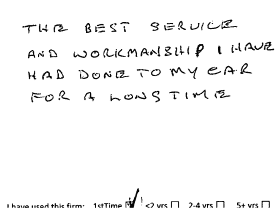 THE BEST SERVICE
AND WORKMANSHIP I HAVE
HAD DONE TO MY CAR
FOR A LONG TIME
I have used this firm: 1stTime ☑ <2 yrs ☐ 2-4 yrs ☐ 5+ yrs ☐